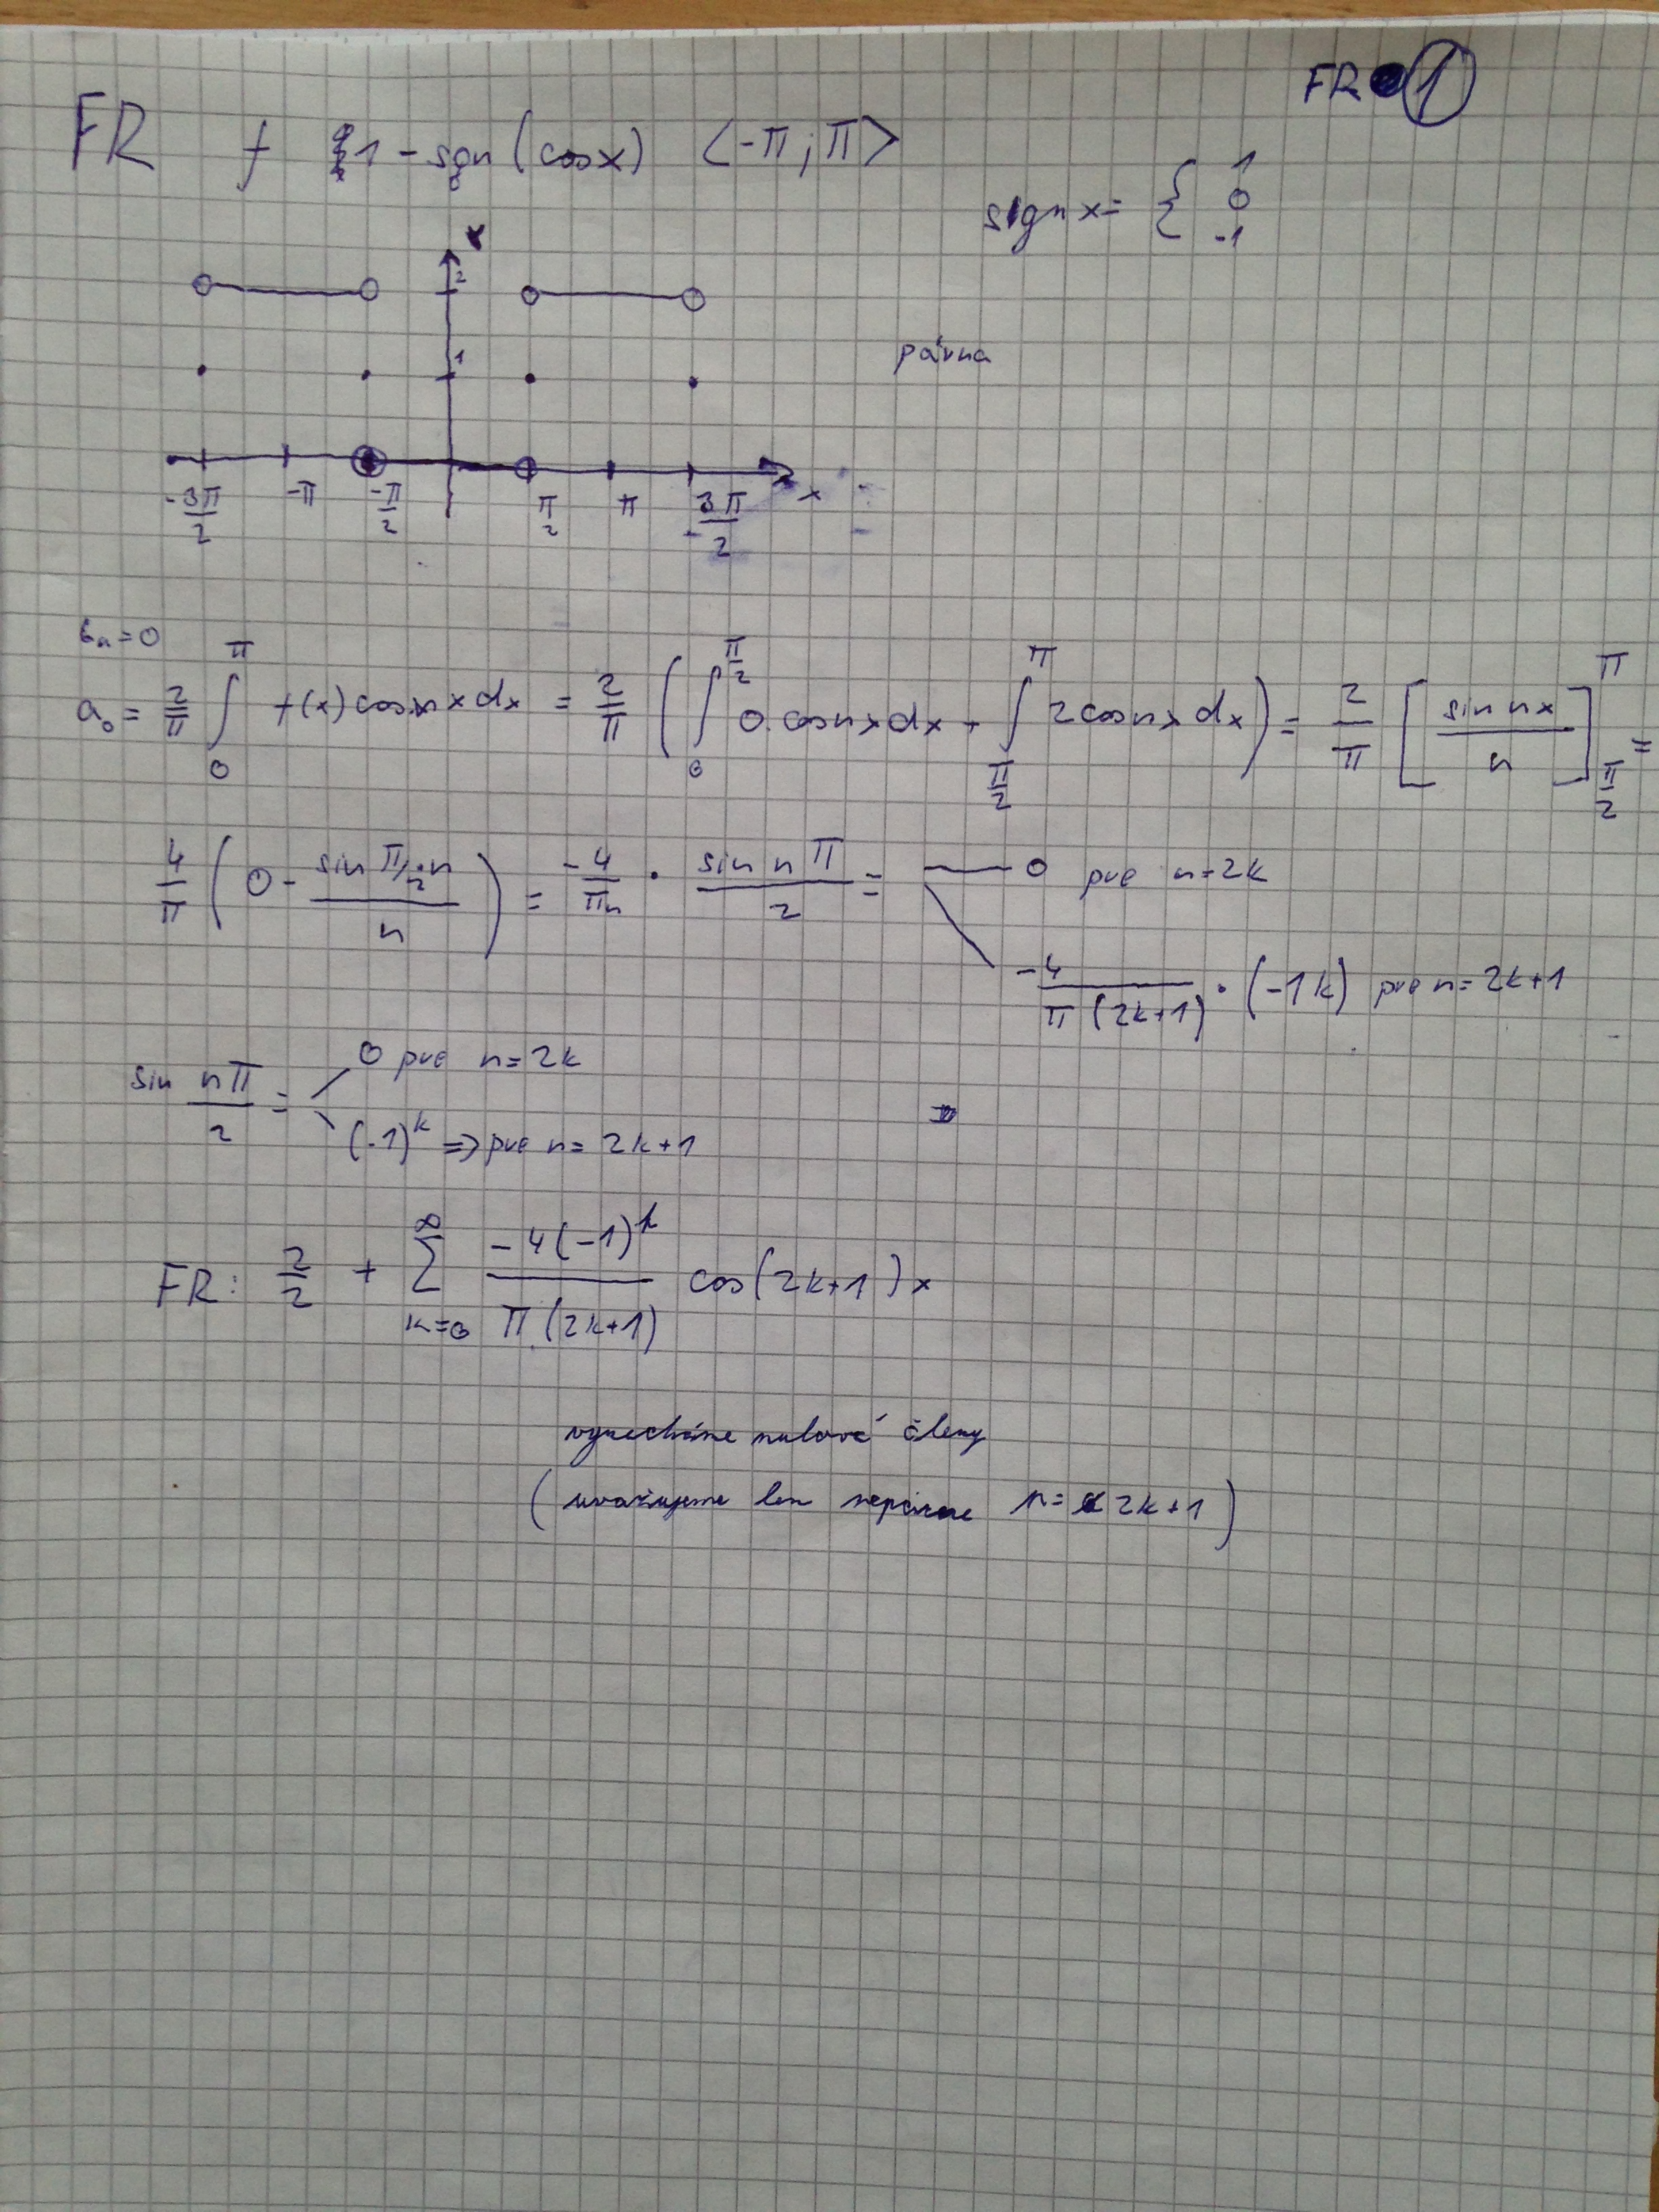 FR 1
FR f 1 - sgn (cos x) <-π ; π>
sign x = { 1 0 -1
2
párna
1
-3π/2 -π -π/2 π/2 π -3π/2 x
bₙ = 0
a₀ = 2/π ∫₀^π f(x) cos nx dx = 2/π ( ∫₀^{π/2} 0. cos nx dx + ∫_{π/2}^π 2 cos nx dx ) = 2/π [ sin nx / n ]_{π/2}^π =
4/π ( 0 - sin π/2·n / n ) = -4/πn · sin nπ/2 = 0 pre n=2k
-4/π(2k+1) · (-1k) pre n=2k+1
sin nπ/2 = 0 pre n=2k
(-1)^k => pre n= 2k+1
FR: 2/2 + ∑_{k=0}^∞ -4(-1)^k / π(2k+1) cos(2k+1)x
vynecháme nulové členy
(uvažujeme len nepárne n= 2k+1)